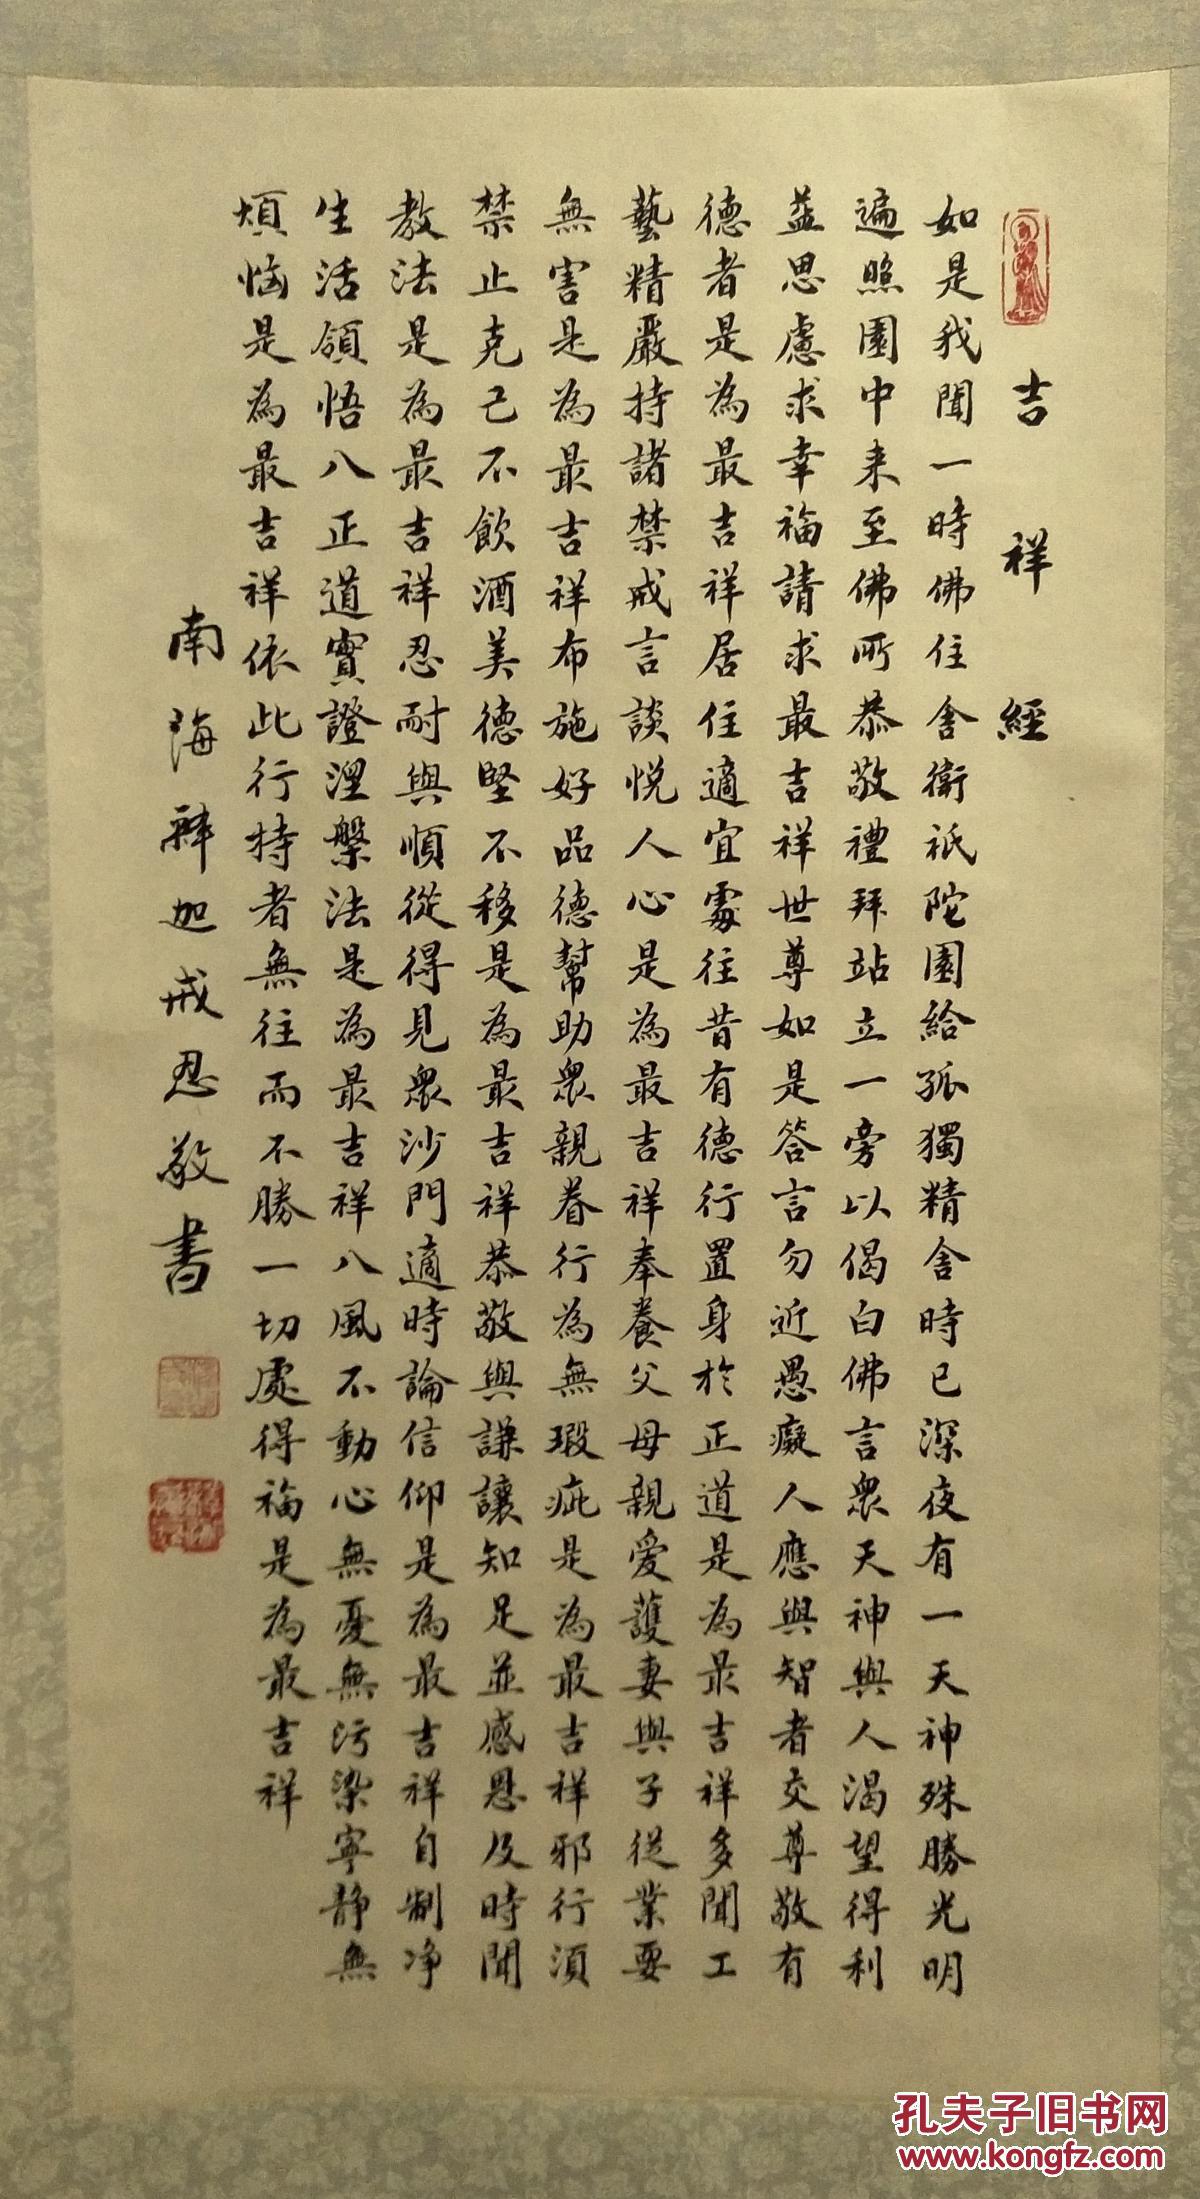 吉祥經
如是我聞一時佛住舍衛祇陀園給孤獨精舍時已深夜有一天神殊勝光明
遍照園中来至佛所恭敬禮拜站立一旁以偈白佛言衆天神與人渴望得利
益思慮求幸福請求最吉祥世尊如是答言勿近愚癡人應與智者交尊敬有
德者是為最吉祥居住適宜處往昔有德行置身於正道是為最吉祥多聞工
藝精嚴持諸禁戒言談悦人心是為最吉祥奉養父母親愛護妻與子從業要
無害是為最吉祥布施好品德幫助衆親眷行為無瑕疵是為最吉祥邪行須
禁止克己不飲酒美德堅不移是為最吉祥恭敬與謙讓知足並感恩及時聞
教法是為最吉祥忍耐與順從得見衆沙門適時論信仰是為最吉祥自制净
生活領悟八正道實證涅槃法是為最吉祥八風不動心無憂無污染寧静無
煩惱是為最吉祥依此行持者無往而不勝一切處得福是為最吉祥
南海釋迦戒忍敬書
孔夫子旧书网
www.kongfz.com